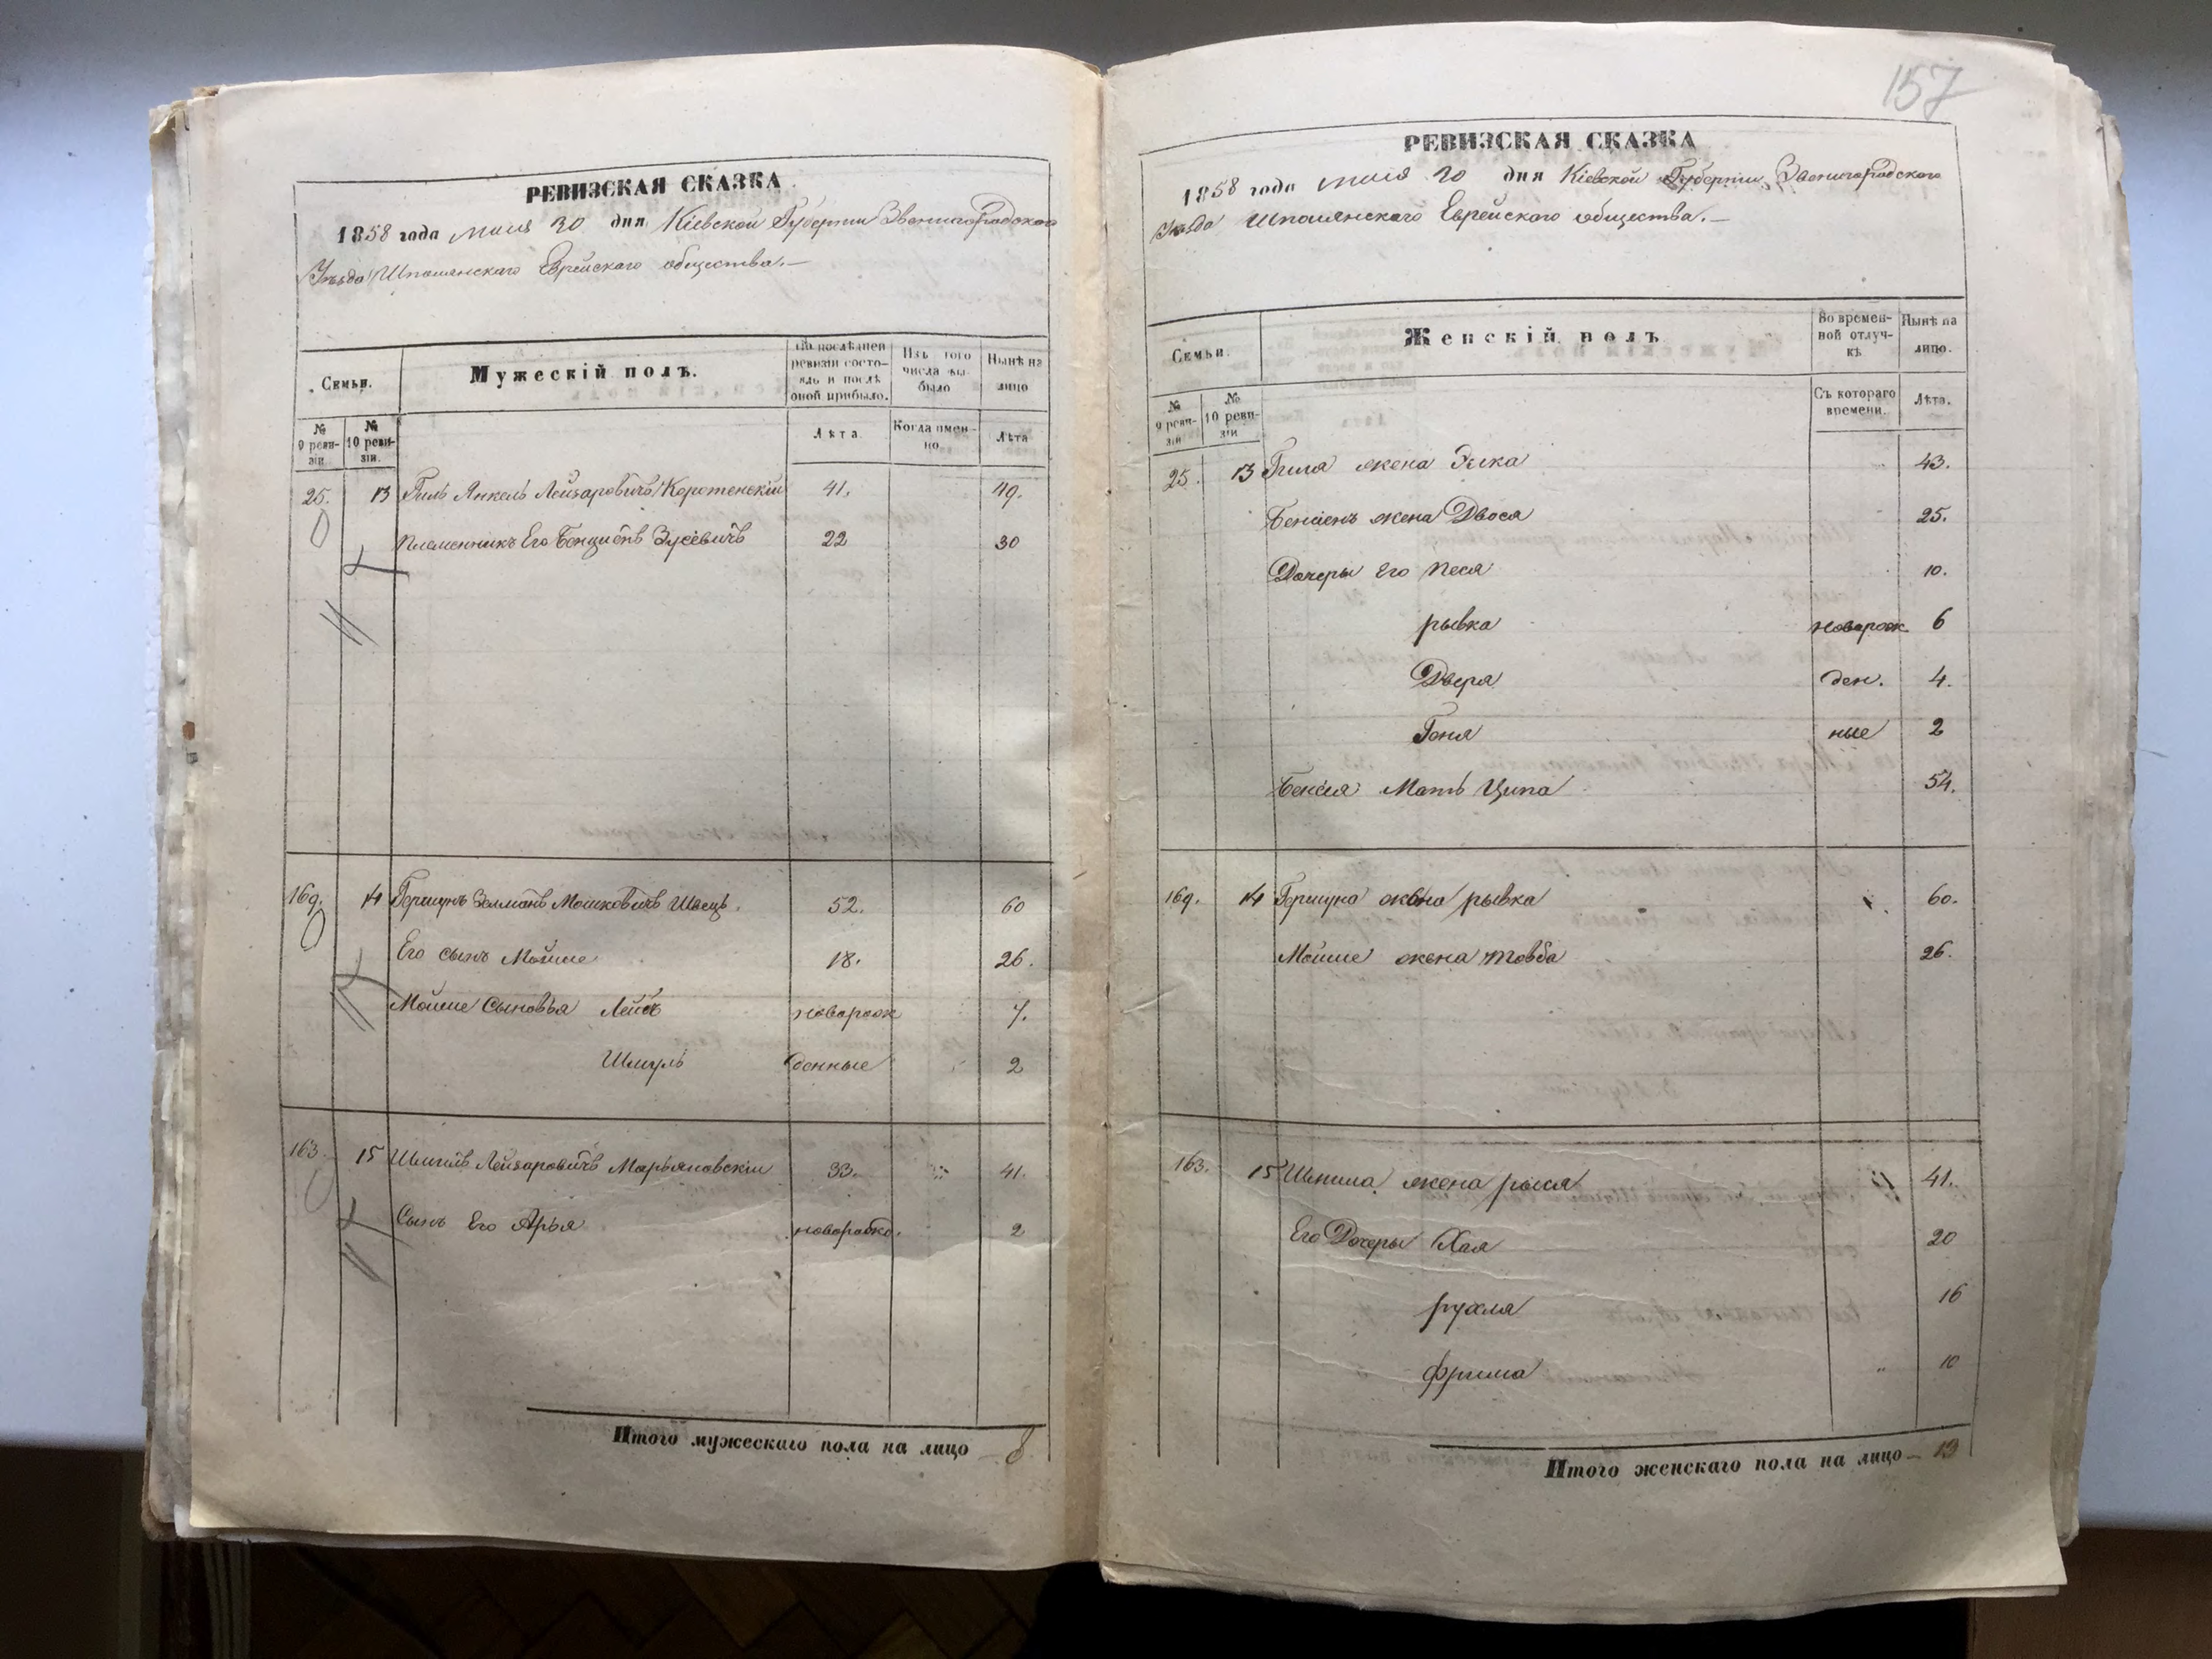 РЕВИЗСКАЯ СКАЗКА
1858 года мая 20 дня Кіевской Губерніи Звенигородскаго
Уѣзда Шполянскаго Еврейскаго общества.—
Семьи.
Мужескій полъ.
По послѣдней ревизіи состояло и послѣ оной прибыло.
Изъ того числа выбыло
Нынѣ на лицо
№ 9 ревизіи
№ 10 ревизіи.
Лѣта
Когда именно.
Лѣта
25. 13 Гиль Янкель Лейзаровичъ Коротенскій 41. 49.
Племенникъ Его Бенціонъ Зусевичъ 22 30
169. 14 Гершунъ Залманъ Мошковичъ Швецъ. 52. 60
Его сынъ Мойше 18. 26.
Мойше Сыновья Лейбъ новорож 7.
Шмуль денные 2
163. 15 Шмилъ Лейзаровичъ Марьяновскій 33. 41.
Сынъ Его Арья новорожд. 2
Итого мужескаго пола на лицо — 8
157
РЕВИЗСКАЯ СКАЗКА
1858 года мая 20 дня Кіевской Губерніи Звенигородскаго
Уѣзда Шполянскаго Еврейскаго общества.—
Семьи.
Женскій полъ
Во временной отлучкѣ
Нынѣ на лицо.
№ 9 ревизіи
№ 10 ревизіи
Съ котораго времени.
Лѣта.
25. 13 Гиля жена Элка 43.
Бенціенъ жена Двося 25.
Дочеры Его Песя 10.
рывка новорож 6
Двера ден. 4.
Геня ные 2
Бенсія Мать Ципа 54.
169. 14 Гершуна жена рывка 60.
Мойше жена товба 26.
163. 15 Шмила жена рыся 41.
Его Дочеры Хая 20
рухля 16
фрима " 10
Итого женскаго пола на лицо — 13